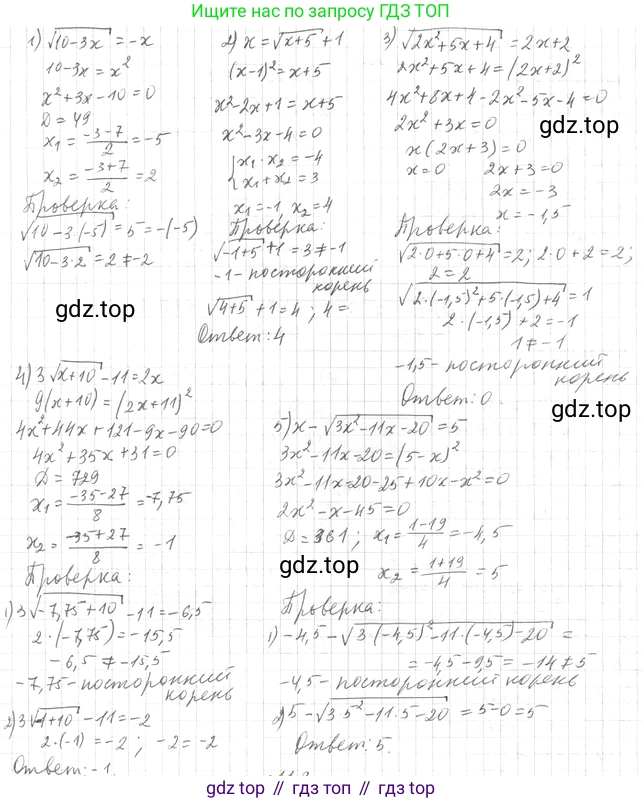 Ищите нас по запросу ГДЗ ТОП
1) √(10-3x) = -x
10-3x = x²
x²+3x-10=0
D = 49
x₁ = (-3-7)/2 = -5
x₂ = (-3+7)/2 = 2
Проверка:
√(10-3·(-5)) = 5 = -(-5)
√(10-3·2) = 2 ≠ -2
2) x = √(x+5) + 1
(x-1)² = x+5
x²-2x+1 = x+5
x²-3x-4=0
{x₁·x₂ = -4
{x₁+x₂ = 3
x₁=-1, x₂=4
Проверка:
√(-1+5) +1 = 3 ≠ -1
-1- посторонний
корень
√(4+5) +1=4; 4=
Ответ: 4
3) √(2x²+5x+4) = 2x+2
2x²+5x+4 = (2x+2)²
4x²+8x+4-2x²-5x-4=0
2x²+3x=0
x(2x+3)=0
x=0 2x+3=0
2x=-3
x=-1,5
Проверка:
√(2·0+5·0+4) = 2; 2·0+2=2;
2=2
√(2·(-1,5)²+5·(-1,5)+4) = 1
2·(-1,5)+2=-1
1≠-1
-1,5- посторонний
корень
Ответ: 0
gdz.top
gdz.top
gdz.top
4) 3√(x+10) -11=2x
9(x+10) = (2x+11)²
4x²+44x+121-9x-90=0
4x²+35x+31=0
D = 729
x₁ = (-35-27)/8 = -7,75
x₂ = (-35+27)/8 = -1
Проверка:
1) 3√(-7,75+10) -11=-6,5
2·(-7,75) = -15,5
-6,5 ≠ -15,5
-7,75- посторонний
корень
2) 3√(-1+10) -11=-2
2·(-1) = -2; -2=-2
Ответ: -1.
5) x - √(3x²-11x-20) = 5
3x²-11x-20=(5-x)²
3x²-11x-20-25+10x-x²=0
2x²-x-45=0
D=361; x₁ = (1-19)/4 = -4,5
x₂ = (1+19)/4 = 5
gdz.top
Проверка:
1) -4,5 - √(3(-4,5)²-11·(-4,5)-20) =
= -4,5-9,5 = -14≠5
-4,5- посторонний корень
2) 5 - √(3·5²-11·5-20) = 5-0=5
Ответ: 5.
gdz top // gdz top // gdz top